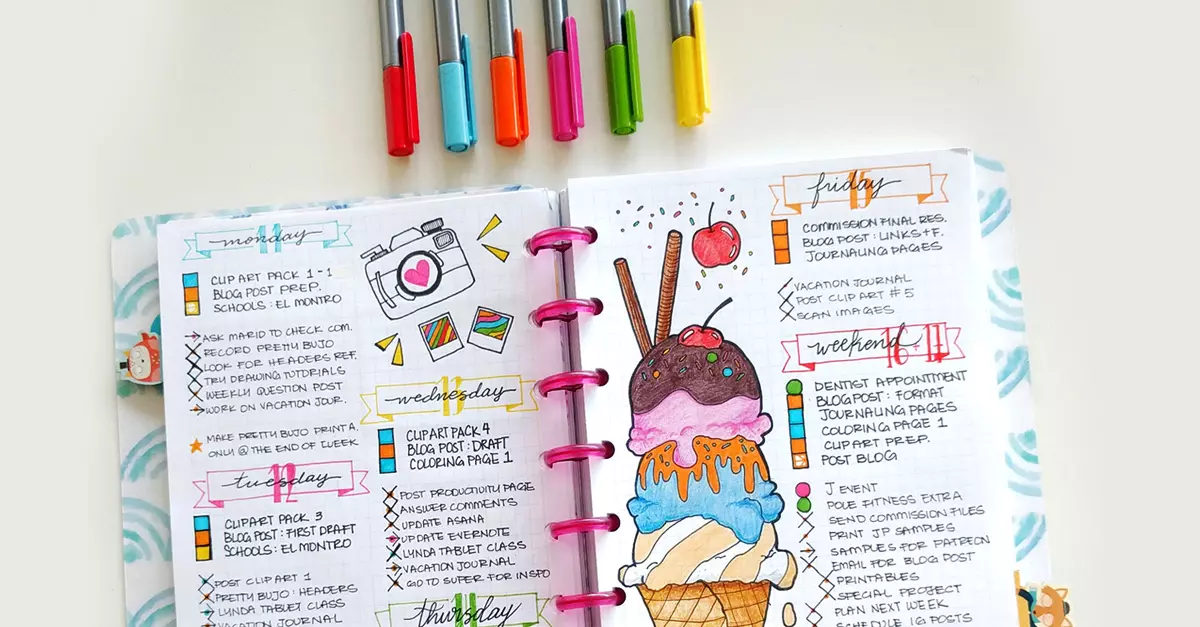 monday 11
CLIP ART PACK 1-1
BLOG POST PREP.
SCHOOLS: EL MONTRO
ASK MARID TO CHECK COM.
RECORD PRETTY BUJO
LOOK FOR HEADERS REF.
TRY DRAWING TUTORIALS
WEEKLY QUESTION POST
WORK ON VACATION JOUR.
MAKE PRETTY BUJO PRINT A.
ONLY @ THE END OF WEEK
tuesday 12
CLIPART PACK 3
BLOG POST: FIRST DRAFT
SCHOOLS: EL MONTRO
POST CLIP ART 1
PRETTY BUJO: HEADERS
LYNDA TABLET CLASS
VACATION JOURNAL
wednesday 13
CLIPART PACK 4
BLOG POST: DRAFT
COLORING PAGE 1
POST PRODUCTIVITY PAGE
ANSWER COMMENTS
UPDATE ASANA
UPDATE EVERNOTE
LYNDA TABLET CLASS
VACATION JOURNAL
GO TO SUPER FOR INSPO
thursday
friday 15
COMMISSION FINAL RES.
BLOG POST: LINKS+F.
JOURNALING PAGES
VACATION JOURNAL
POST CLIP ART #5
SCAN IMAGES
weekend 16+17
DENTIST APPOINTMENT
BLOGPOST: FORMAT
JOURNALING PAGES
COLORING PAGE 1
CLIPART PREP.
POST BLOG
J EVENT
POLE FITNESS EXTRA
SEND COMMISSION FILES
PRINT JP SAMPLES
SAMPLES FOR PATREON
EMAIL FOR BLOG POST
PRINTABLES
SPECIAL PROJECT
PLAN NEXT WEEK
SCHEDULE IG POSTS